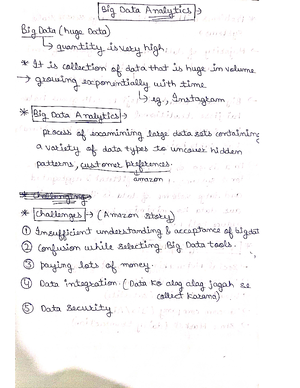 Big Data Analytics →
Big Data (huge Data)
↳ quantity is very high.
* It is collection of data that is huge in volume
→ growing exponentially with time
↳ eg., Instagram
* Big Data Analytics →
process of examining large data sets containing
a variety of data types to uncover hidden
patterns, customer preferences.
amazon
* Challenges
* Challenges → (Amazon Story)
① Insufficient understanding & acceptance of bigdata
② confusion while selecting Big Data tools.
③ paying lots of money.
④ Data integration. (Data ko alag alag jagah se
collect karana)
⑤ Data Security